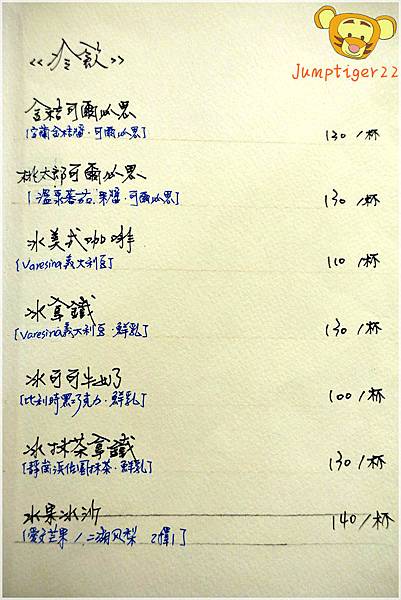 <<冷飲>>
Jumptiger22
金桔可爾必思
[宜蘭金桔醬·可爾必思]
130/杯
桃太郎可爾必思
[溫室蕃茄果醬·可爾必思]
130/杯
冰美式咖啡
[Varesina義大利豆]
110/杯
冰拿鐵
[Varesina義大利豆·鮮乳]
130/杯
冰可可牛奶
[比利時黑巧克力·鮮乳]
100/杯
冰抹茶拿鐵
[靜岡浜佐園抹茶·鮮乳]
130/杯
水果冰沙
140/杯
[愛文芒果/二湖鳳梨 2擇1]